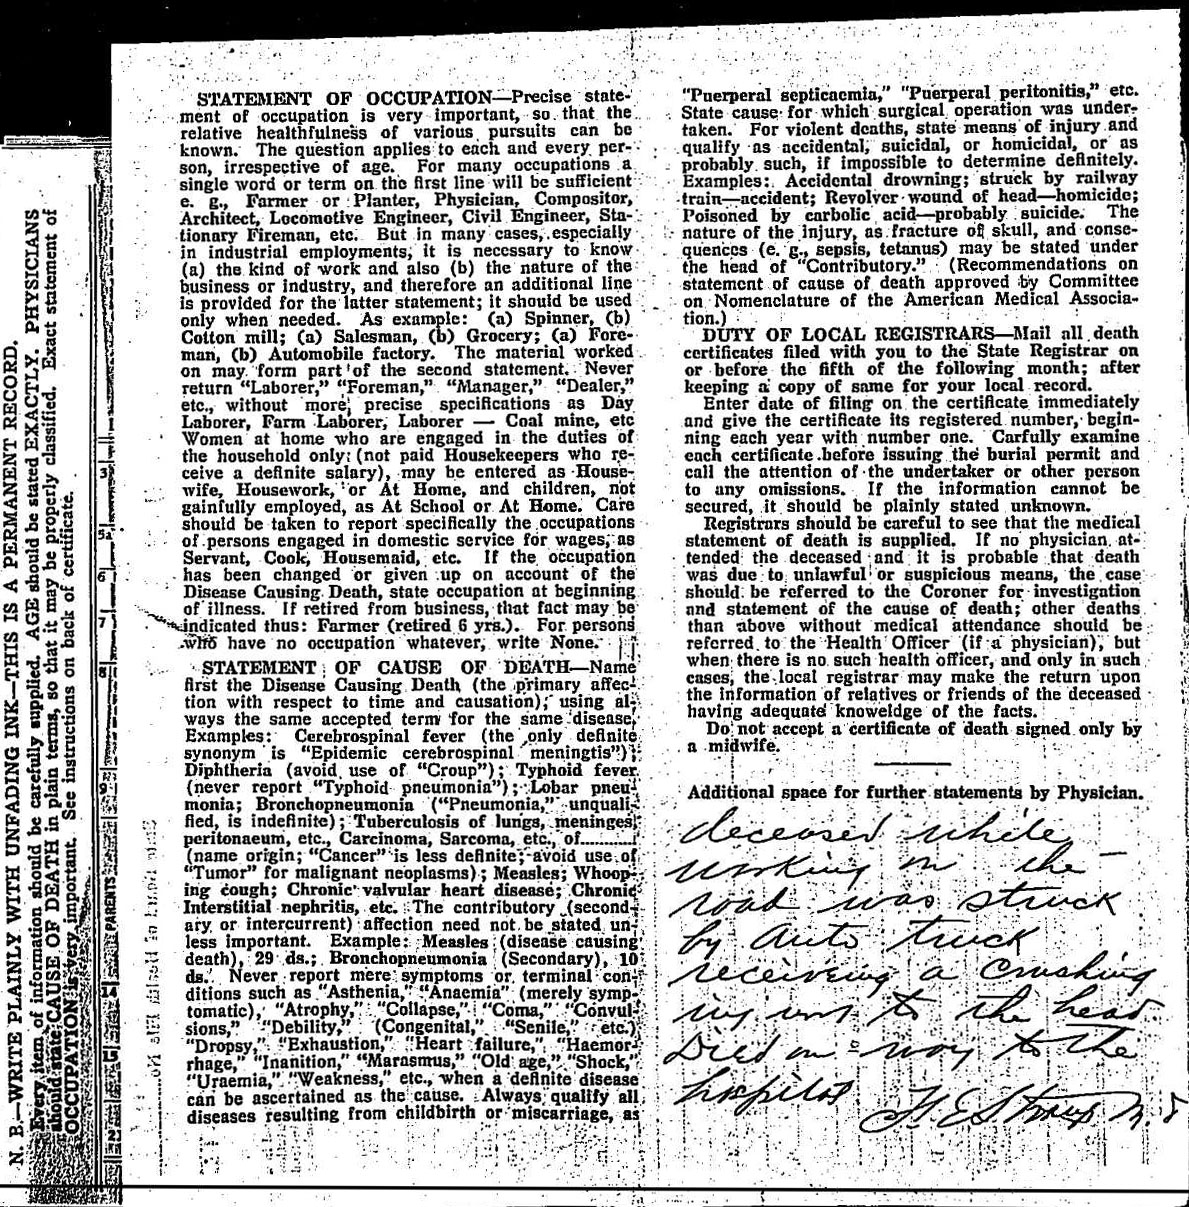 N. B.—WRITE PLAINLY WITH UNFADING INK—THIS IS A PERMANENT RECORD.
Every item of information should be carefully supplied. AGE should be stated EXACTLY. PHYSICIANS
should state CAUSE OF DEATH in plain terms, so that it may be properly classified. Exact statement of
OCCUPATION is very important. See instructions on back of certificate.
3
5a
6
7
8
9
PARENTS
14
15
2
STATEMENT OF OCCUPATION—Precise state-
ment of occupation is very important, so that the
relative healthfulness of various pursuits can be
known. The question applies to each and every per-
son, irrespective of age. For many occupations a
single word or term on the first line will be sufficient
e. g., Farmer or Planter, Physician, Compositor,
Architect, Locomotive Engineer, Civil Engineer, Sta-
tionary Fireman, etc. But in many cases, especially
in industrial employments, it is necessary to know
(a) the kind of work and also (b) the nature of the
business or industry, and therefore an additional line
is provided for the latter statement; it should be used
only when needed. As example: (a) Spinner, (b)
Cotton mill; (a) Salesman, (b) Grocery; (a) Fore-
man, (b) Automobile factory. The material worked
on may form part of the second statement. Never
return "Laborer," "Foreman," "Manager," "Dealer,"
etc., without more precise specifications as Day
Laborer, Farm Laborer, Laborer — Coal mine, etc
Women at home who are engaged in the duties of
the household only (not paid Housekeepers who re-
ceive a definite salary), may be entered as House-
wife, Housework, or At Home, and children, not
gainfully employed, as At School or At Home. Care
should be taken to report specifically the occupations
of persons engaged in domestic service for wages, as
Servant, Cook, Housemaid, etc. If the occupation
has been changed or given up on account of the
Disease Causing Death, state occupation at beginning
of illness. If retired from business, that fact may be
indicated thus: Farmer (retired 6 yrs.). For persons
who have no occupation whatever, write None.
STATEMENT OF CAUSE OF DEATH—Name
first the Disease Causing Death (the primary affec-
tion with respect to time and causation); using al-
ways the same accepted term for the same disease.
Examples: Cerebrospinal fever (the only definite
synonym is "Epidemic cerebrospinal meningtis");
Diphtheria (avoid use of "Croup"); Typhoid fever
(never report "Typhoid pneumonia"); Lobar pneu-
monia; Bronchopneumonia ("Pneumonia," unquali-
fied, is indefinite); Tuberculosis of lungs, meninges,
peritonaeum, etc., Carcinoma, Sarcoma, etc., of..........
(name origin; "Cancer" is less definite; avoid use of
"Tumor" for malignant neoplasms); Measles; Whoop-
ing cough; Chronic valvular heart disease; Chronic
Interstitial nephritis, etc. The contributory (second-
ary or intercurrent) affection need not be stated un-
less important. Example: Measles (disease causing
death), 29 ds.; Bronchopneumonia (Secondary), 10
ds. Never report mere symptoms or terminal con-
ditions such as "Asthenia," "Anaemia" (merely symp-
tomatic), "Atrophy," "Collapse," "Coma," "Convul-
sions," "Debility," (Congenital," "Senile," etc.)
"Dropsy," "Exhaustion," "Heart failure," "Haemor-
rhage," "Inanition," "Marasmus," "Old age," "Shock,"
"Uraemia," "Weakness," etc., when a definite disease
can be ascertained as the cause. Always qualify all
diseases resulting from childbirth or miscarriage, as
"Puerperal septicaemia," "Puerperal peritonitis," etc.
State cause for which surgical operation was under-
taken. For violent deaths, state means of injury and
qualify as accidental, suicidal, or homicidal, or as
probably such, if impossible to determine definitely.
Examples: Accidental drowning; struck by railway
train—accident; Revolver wound of head—homicide;
Poisoned by carbolic acid—probably suicide. The
nature of the injury, as fracture of skull, and conse-
quences (e. g., sepsis, tetanus) may be stated under
the head of "Contributory." (Recommendations on
statement of cause of death approved by Committee
on Nomenclature of the American Medical Associa-
tion.)
DUTY OF LOCAL REGISTRARS—Mail all death
certificates filed with you to the State Registrar on
or before the fifth of the following month; after
keeping a copy of same for your local record.
Enter date of filing on the certificate immediately
and give the certificate its registered number, begin-
ning each year with number one. Carfully examine
each certificate before issuing the burial permit and
call the attention of the undertaker or other person
to any omissions. If the information cannot be
secured, it should be plainly stated unknown.
Registrars should be careful to see that the medical
statement of death is supplied. If no physician at-
tended the deceased and it is probable that death
was due to unlawful or suspicious means, the case
should be referred to the Coroner for investigation
and statement of the cause of death; other deaths
than above without medical attendance should be
referred to the Health Officer (if a physician), but
when there is no such health officer, and only in such
cases, the local registrar may make the return upon
the information of relatives or friends of the deceased
having adequate knoweldge of the facts.
Do not accept a certificate of death signed only by
a midwife.
Additional space for further statements by Physician.
deceased while
working on the
road was struck
by Auto truck
receiving a Crushing
injury to the head
Died on way to the
hospital